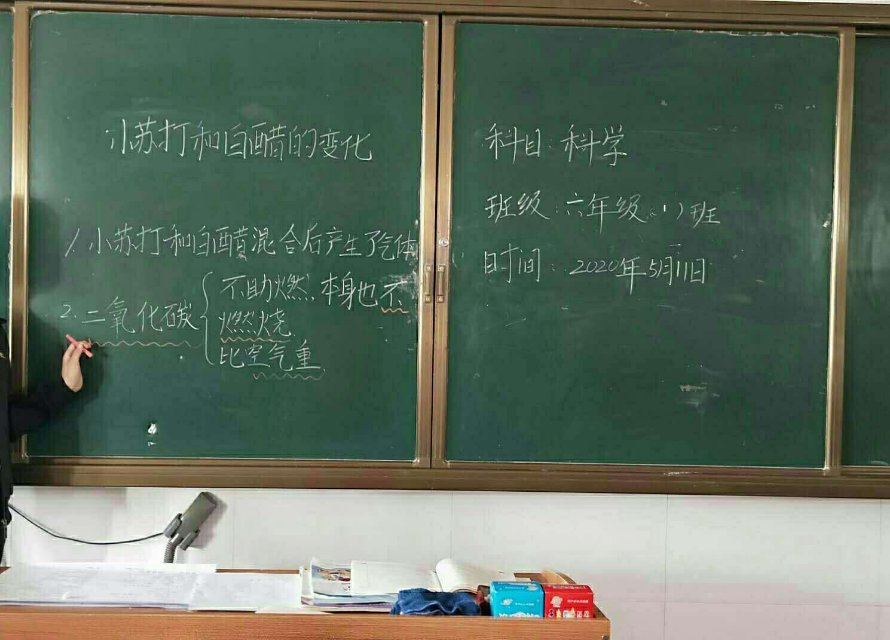 小苏打和白醋的变化
1.小苏打和白醋混合后产生了气体
2.二氧化碳
不助燃,本身也不
燃烧
比空气重
科目:科学
班级:六年级(1)班
时间:2020年5月11日